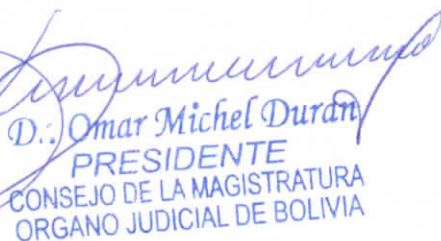 D.: Omar Michel Durán
PRESIDENTE
CONSEJO DE LA MAGISTRATURA
ORGANO JUDICIAL DE BOLIVIA